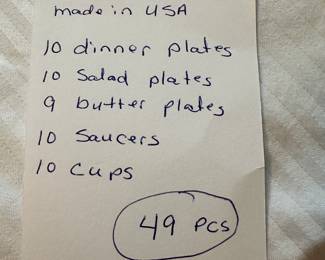 made in USA
10 dinner plates
10 Salad plates
9 butter plates
10 Saucers
10 Cups
49 pcs